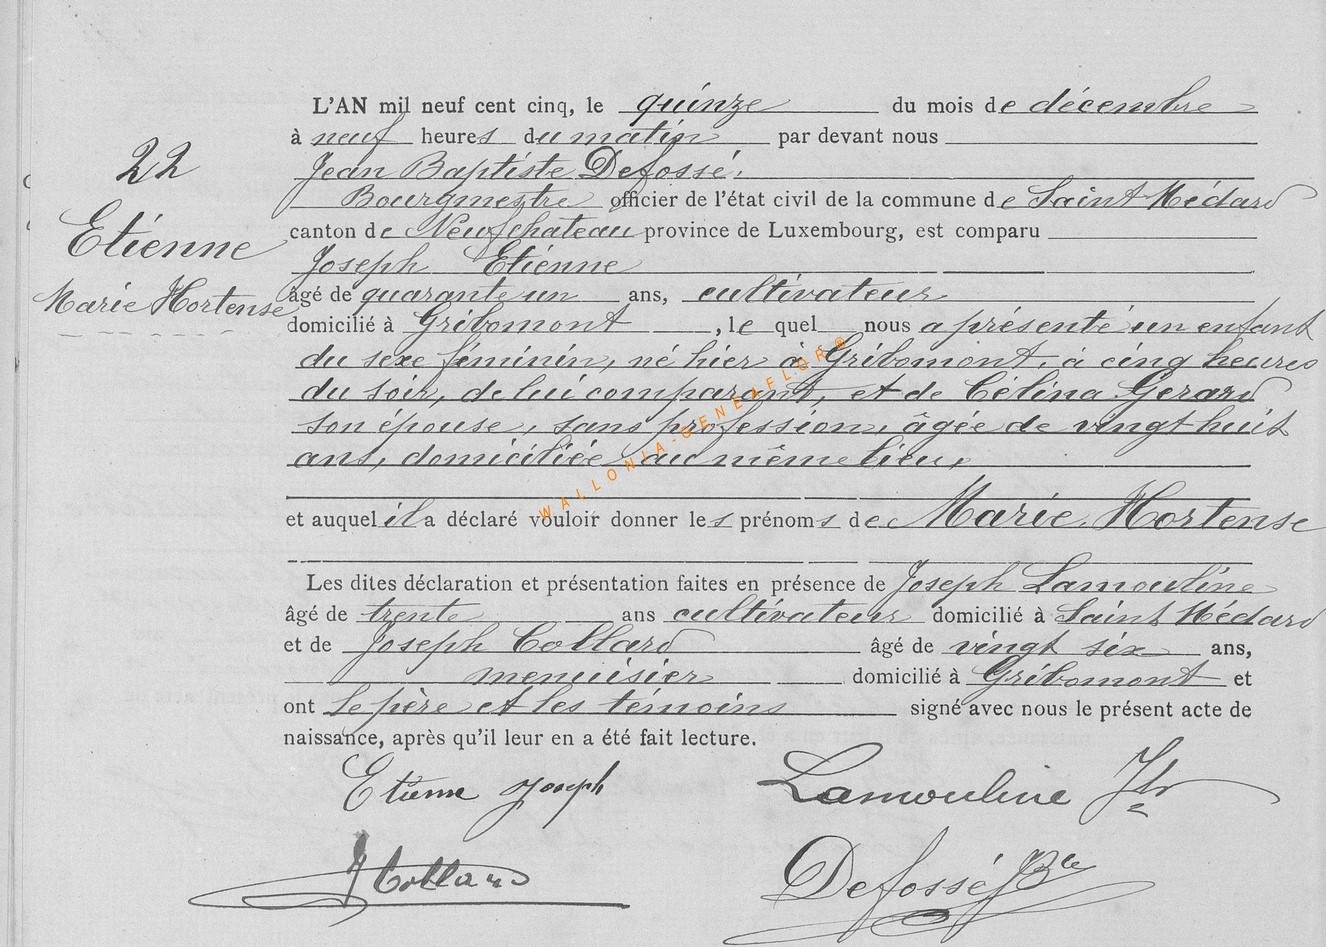 22
Etienne
Marie Hortense
L'AN mil neuf cent cinq, le quinze du mois de décembre
à neuf heures du matin par devant nous
Jean Baptiste Defossé,
Bourgmestre officier de l'état civil de la commune de Saint Médard
canton de Neufchateau province de Luxembourg, est comparu
Joseph Etienne
âgé de quarante un ans, cultivateur
domicilié à Gribomont, le quel nous a présenté un enfant
du sexe féminin, né hier à Gribomont, à cinq heures
du soir, de lui comparant, et de Célina Gerard
son épouse, sans profession, âgée de vingt huit
ans, domiciliée au même lieu,
et auquel il a déclaré vouloir donner les prénoms de Marie Hortense
Les dites déclaration et présentation faites en présence de Joseph Lamouline
âgé de trente ans cultivateur domicilié à Saint Médard
et de Joseph Collard âgé de vingt six ans,
menuisier domicilié à Gribomont et
ont le père et les témoins signé avec nous le présent acte de
naissance, après qu'il leur en a été fait lecture.
Etienne Joseph Lamouline Jh
J Collard Defossé JBte
WALLONIA-GENEAFLOR®